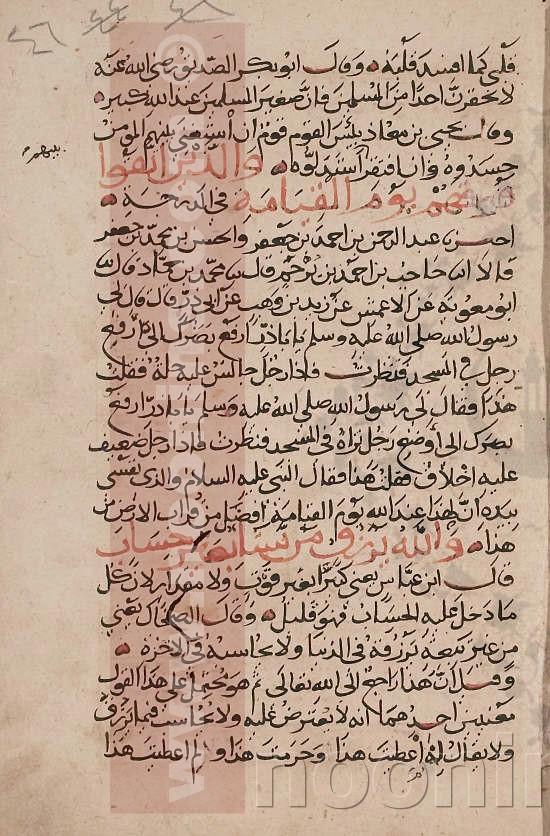 قلبي كما افسد قلبه وقال ابو بكر الصديق رضي الله عنه
لا تحقرن احدا من المسلمين فان صغير المسلمين عند الله كبير
وقال يحيى بن معاذ بئس القوم قوم ان استغنى بينهم المومن
حسدوه وان افتقر استذلوه والذين اتقوا
فوقهم يوم القيامة في الدرجة
عبد الرحمن بن احمد بن جعفر والحسن بن محمد بن جعفر
قالا حاجب بن احمد بن محمد بن حماد قال
ابو معوية عن الاعمش عن زيد بن وهب عن ابي ذر قال قال لي
رسول الله صلى الله عليه وسلم يا با ذر ارفع بصرك الى ارفع
رجل في المسجد فنظرت فاذا رجل جالس عليه حلة فقلت
هذا فقال لي رسول الله صلى الله عليه وسلم يا با ذر ارفع
بصرك الى اوضع رجل تراه في المسجد فنظرت فاذا رجل ضعيف
عليه اخلاق فقلت هذا فقال النبي عليه السلام والذي نفسي
بيده ان لهذا عند الله يوم القيامة افضل من قراب الارض من
هذا والله يرزق من يشاء بغير حساب
قال ابن عباس يعني كثيرا بغير فوت ولا مقدار لان كل
ما دخل عليه الحساب فهو قليل وقال الضحاك يعني
من غير تبعة يرزقه في الدنيا ولا يحاسبه في الاخرة
وقيل ان هذا راجع الى الله تعالى ثم هو محتمل على هذا القول
معنيين احدهما انه لا يعترض عليه ولا يحاسب فيما يرزق
ولا يقال له اعطيت هذا وحرمت هذا ولم اعطيت هذا
بينهم
noorlib